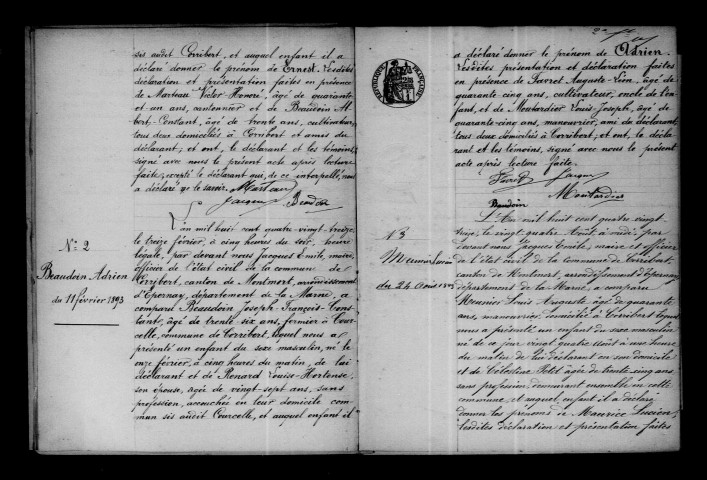 sis audit Corribert, et auquel enfant il a
déclaré donner le prénom de Ernest. Lesdites
déclaration et présentation faites en présence
de Marteau Victor Honoré, âgé de quarante
et un ans, cantonnier et de Beaudoin Al
bert-Constant, âgé de trente ans, cultivateur,
tous deux domiciliés à Corribert et amis du
déclarant; et ont, le déclarant et les témoins,
signé avec nous le présent acte après lecture
faite, excepté le déclarant qui, de ce interpellé, nous
a déclaré ne le savoir. Marteau
Jacques Beaudoin
N° 2
Beaudoin Adrien
du 11 février 1893
L'an mil huit cent quatre-vingt-treize,
le treize février, à cinq heures du soir, heure
légale, par devant nous Jacques Emile, maire,
officier de l'état civil de la commune de
Corribert, canton de Montmort, arrondissement
d'Epernay, département de la Marne, a
comparu Beaudoin Joseph-François-Cons-
tant, âgé de trente six ans, fermier à Cour-
celle, commune de Corribert, lequel nous a
présenté un enfant du sexe masculin, né le
onze février, à cinq heures du matin, de lui
déclarant et de Renard Louise-Hortense,
son épouse, âgée de vingt-sept ans, sans
profession, accouchée en leur domicile com-
mun sis audit Courcelle, et auquel enfant il
RÉPUBLIQUE FRANÇAISE
a déclaré donner le prénom de Adrien.
Lesdites présentation et déclaration faites
en présence de Favret Auguste-Léon, âgé de
quarante cinq ans, cultivateur, oncle de l'en-
fant, et de Moutardier Louis-Joseph, âgé de
quarante-cinq ans, manouvrier, ami du déclarant,
tous deux domiciliés à Corribert, et ont, le décla-
rant et les témoins, signé avec nous le présent
acte après lecture faite.
Favret Jacques
Moutardier
Beaudoin
N° 3
Meunier
du 24 août 1893
L'An mil huit cent quatre vingt
treize, le vingt quatre Août à midi, par
devant nous Jacques Emile, maire et officier
de l'état civil de la commune de Corribert,
canton de Montmort, arrondissement d'Epernay
département de la Marne, a comparu
Meunier Louis Auguste, âgé de quarante
ans, manouvrier, domicilié à Corribert lequel
nous a présenté un enfant du sexe masculin
né de ce jour vingt quatre août à une heure
du matin de lui déclarant en son domicile
et de Célestine Petit âgée de trente cinq ans
sans profession demeurant ensemble en cette
commune et auquel enfant il a déclaré
donner les prénoms de Maurice Lucien,
lesdites déclaration et présentation faites